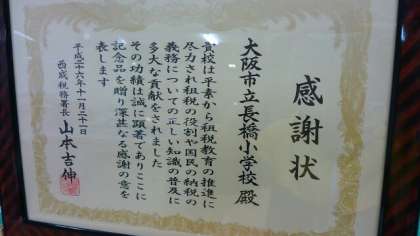 感謝状
大阪市立長橋小学校 殿
貴校は平素から租税教育の推進に
尽力され租税の役割や国民の納税の
義務についての正しい知識の普及に
多大な貢献をされました
その功績は誠に顕著でありここに
記念品を贈り深甚なる感謝の意を
表します
平成二十六年十一月二十一日
西成税務署長 山本吉伸